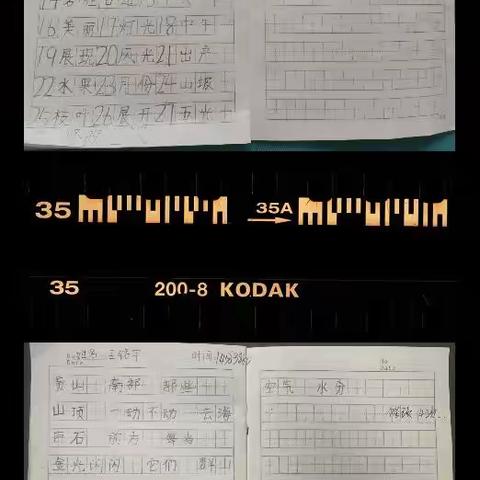 16美丽17灯光18中午
19展现20风光21出产
22水果23月份24山坡
25枝叶26展开27五光十
35 35A
35 200-8 KODAK
姓名 王 时间
山 南部 那些
山顶 一动不动 云海
巨石 前方 每当
金光闪闪 它们 群山
空气 水分